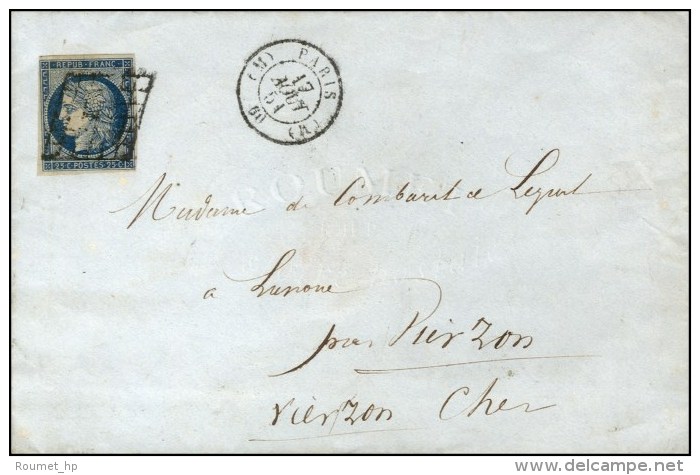 REPUB. FRANC.
25 C. POSTES 25 C.
(M) PARIS (M)
17
AOUT
51
60
Madame de Combarit de
a
par Vierzon
Vierzon Cher
Roumet_hp
www.delcampe.net